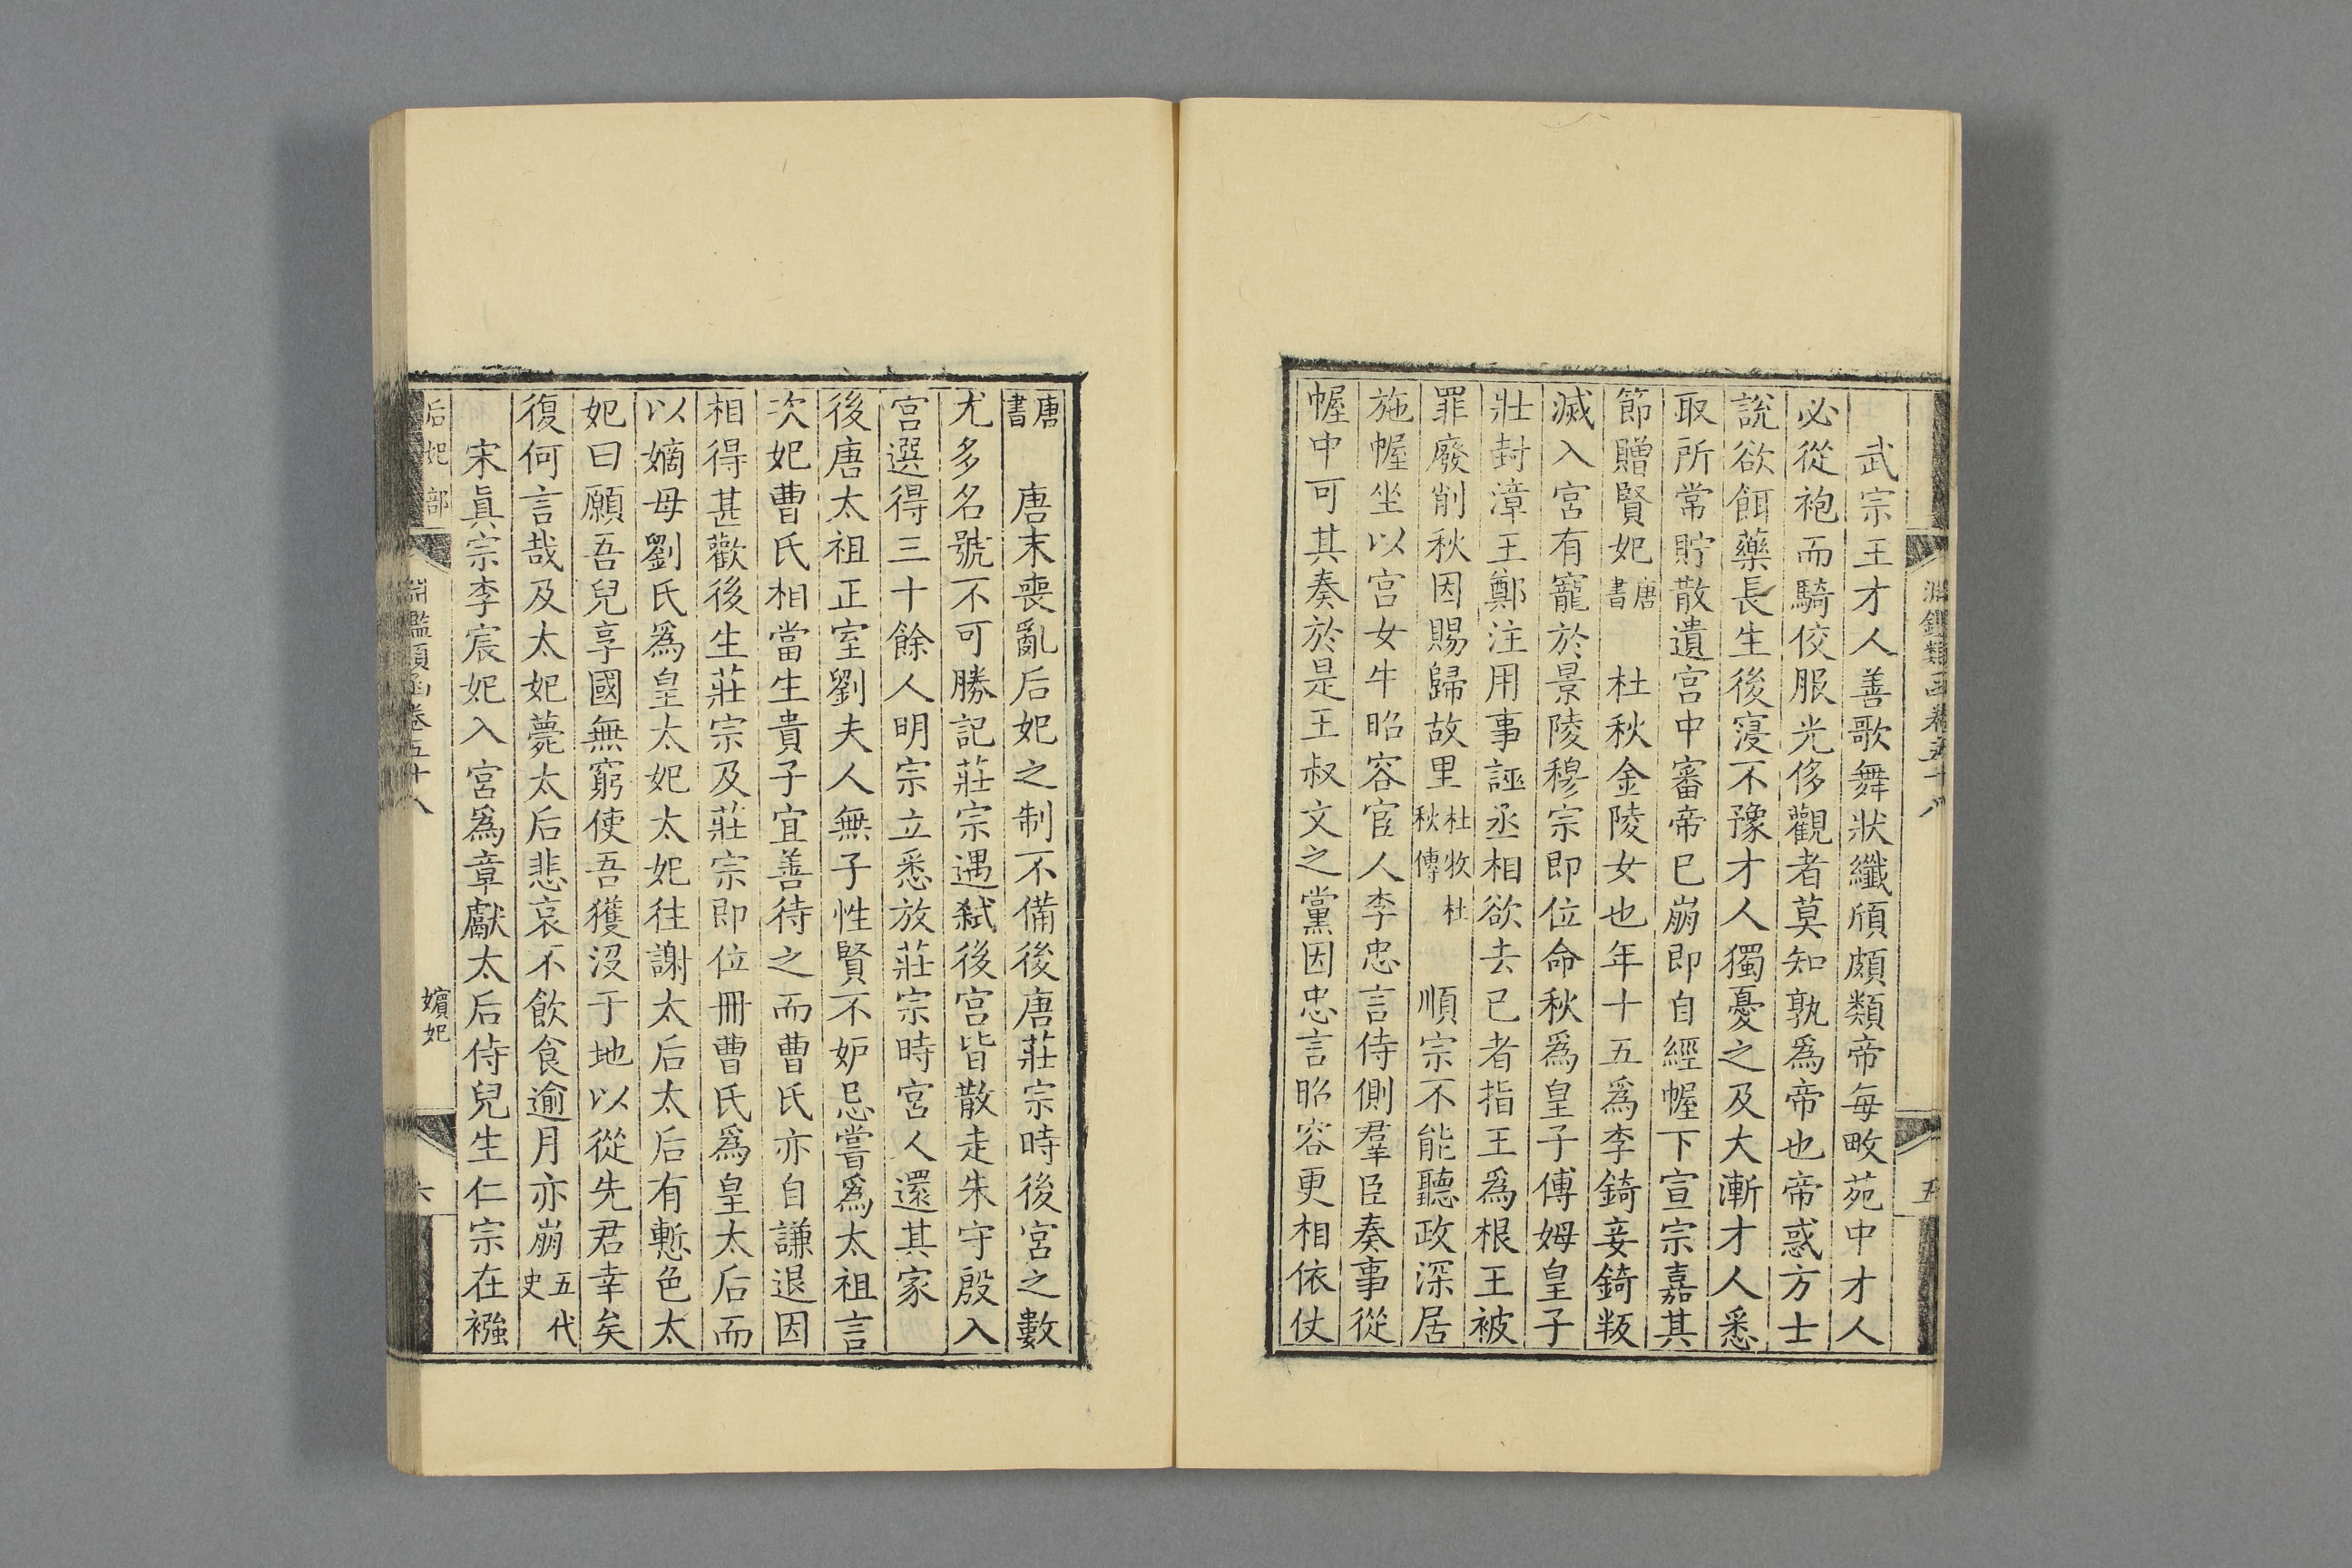 淵鑑類函卷五十八
五
武宗王才人善歌舞狀纖頎頗類帝每畋苑中才人
必從袍而騎佼服光侈觀者莫知孰爲帝也帝惑方士
說欲餌藥長生後寖不豫才人獨憂之及大漸才人悉
取所常貯散遺宮中審帝已崩即自經幄下宣宗嘉其
節贈賢妃唐書 杜秋金陵女也年十五爲李錡妾錡叛
滅入宮有寵於景陵穆宗即位命秋爲皇子傅姆皇子
壯封漳王鄭注用事誣丞相欲去已者指王爲根王被
罪廢削秋因賜歸故里杜牧杜秋傳 順宗不能聽政深居
施幄坐以宮女牛昭容宦人李忠言侍側羣臣奏事從
幄中可其奏於是王叔文之黨因忠言昭容更相依仗
唐書 唐末喪亂后妃之制不備後唐莊宗時後宮之數
尤多名號不可勝記莊宗遇弒後宮皆散走朱守殷入
宮選得三十餘人明宗立悉放莊宗時宮人還其家
後唐太祖正室劉夫人無子性賢不妒忌嘗爲太祖言
次妃曹氏相當生貴子宜善待之而曹氏亦自謙退因
相得甚歡後生莊宗及莊宗即位冊曹氏爲皇太后而
以嫡母劉氏爲皇太妃太妃往謝太后太后有慙色太
妃曰願吾兒享國無窮使吾獲沒于地以從先君幸矣
復何言哉及太妃薨太后悲哀不飲食逾月亦崩五代史
宋眞宗李宸妃入宮爲章獻太后侍兒生仁宗在襁
后妃部
淵鑑類函卷五十八
嬪妃
六